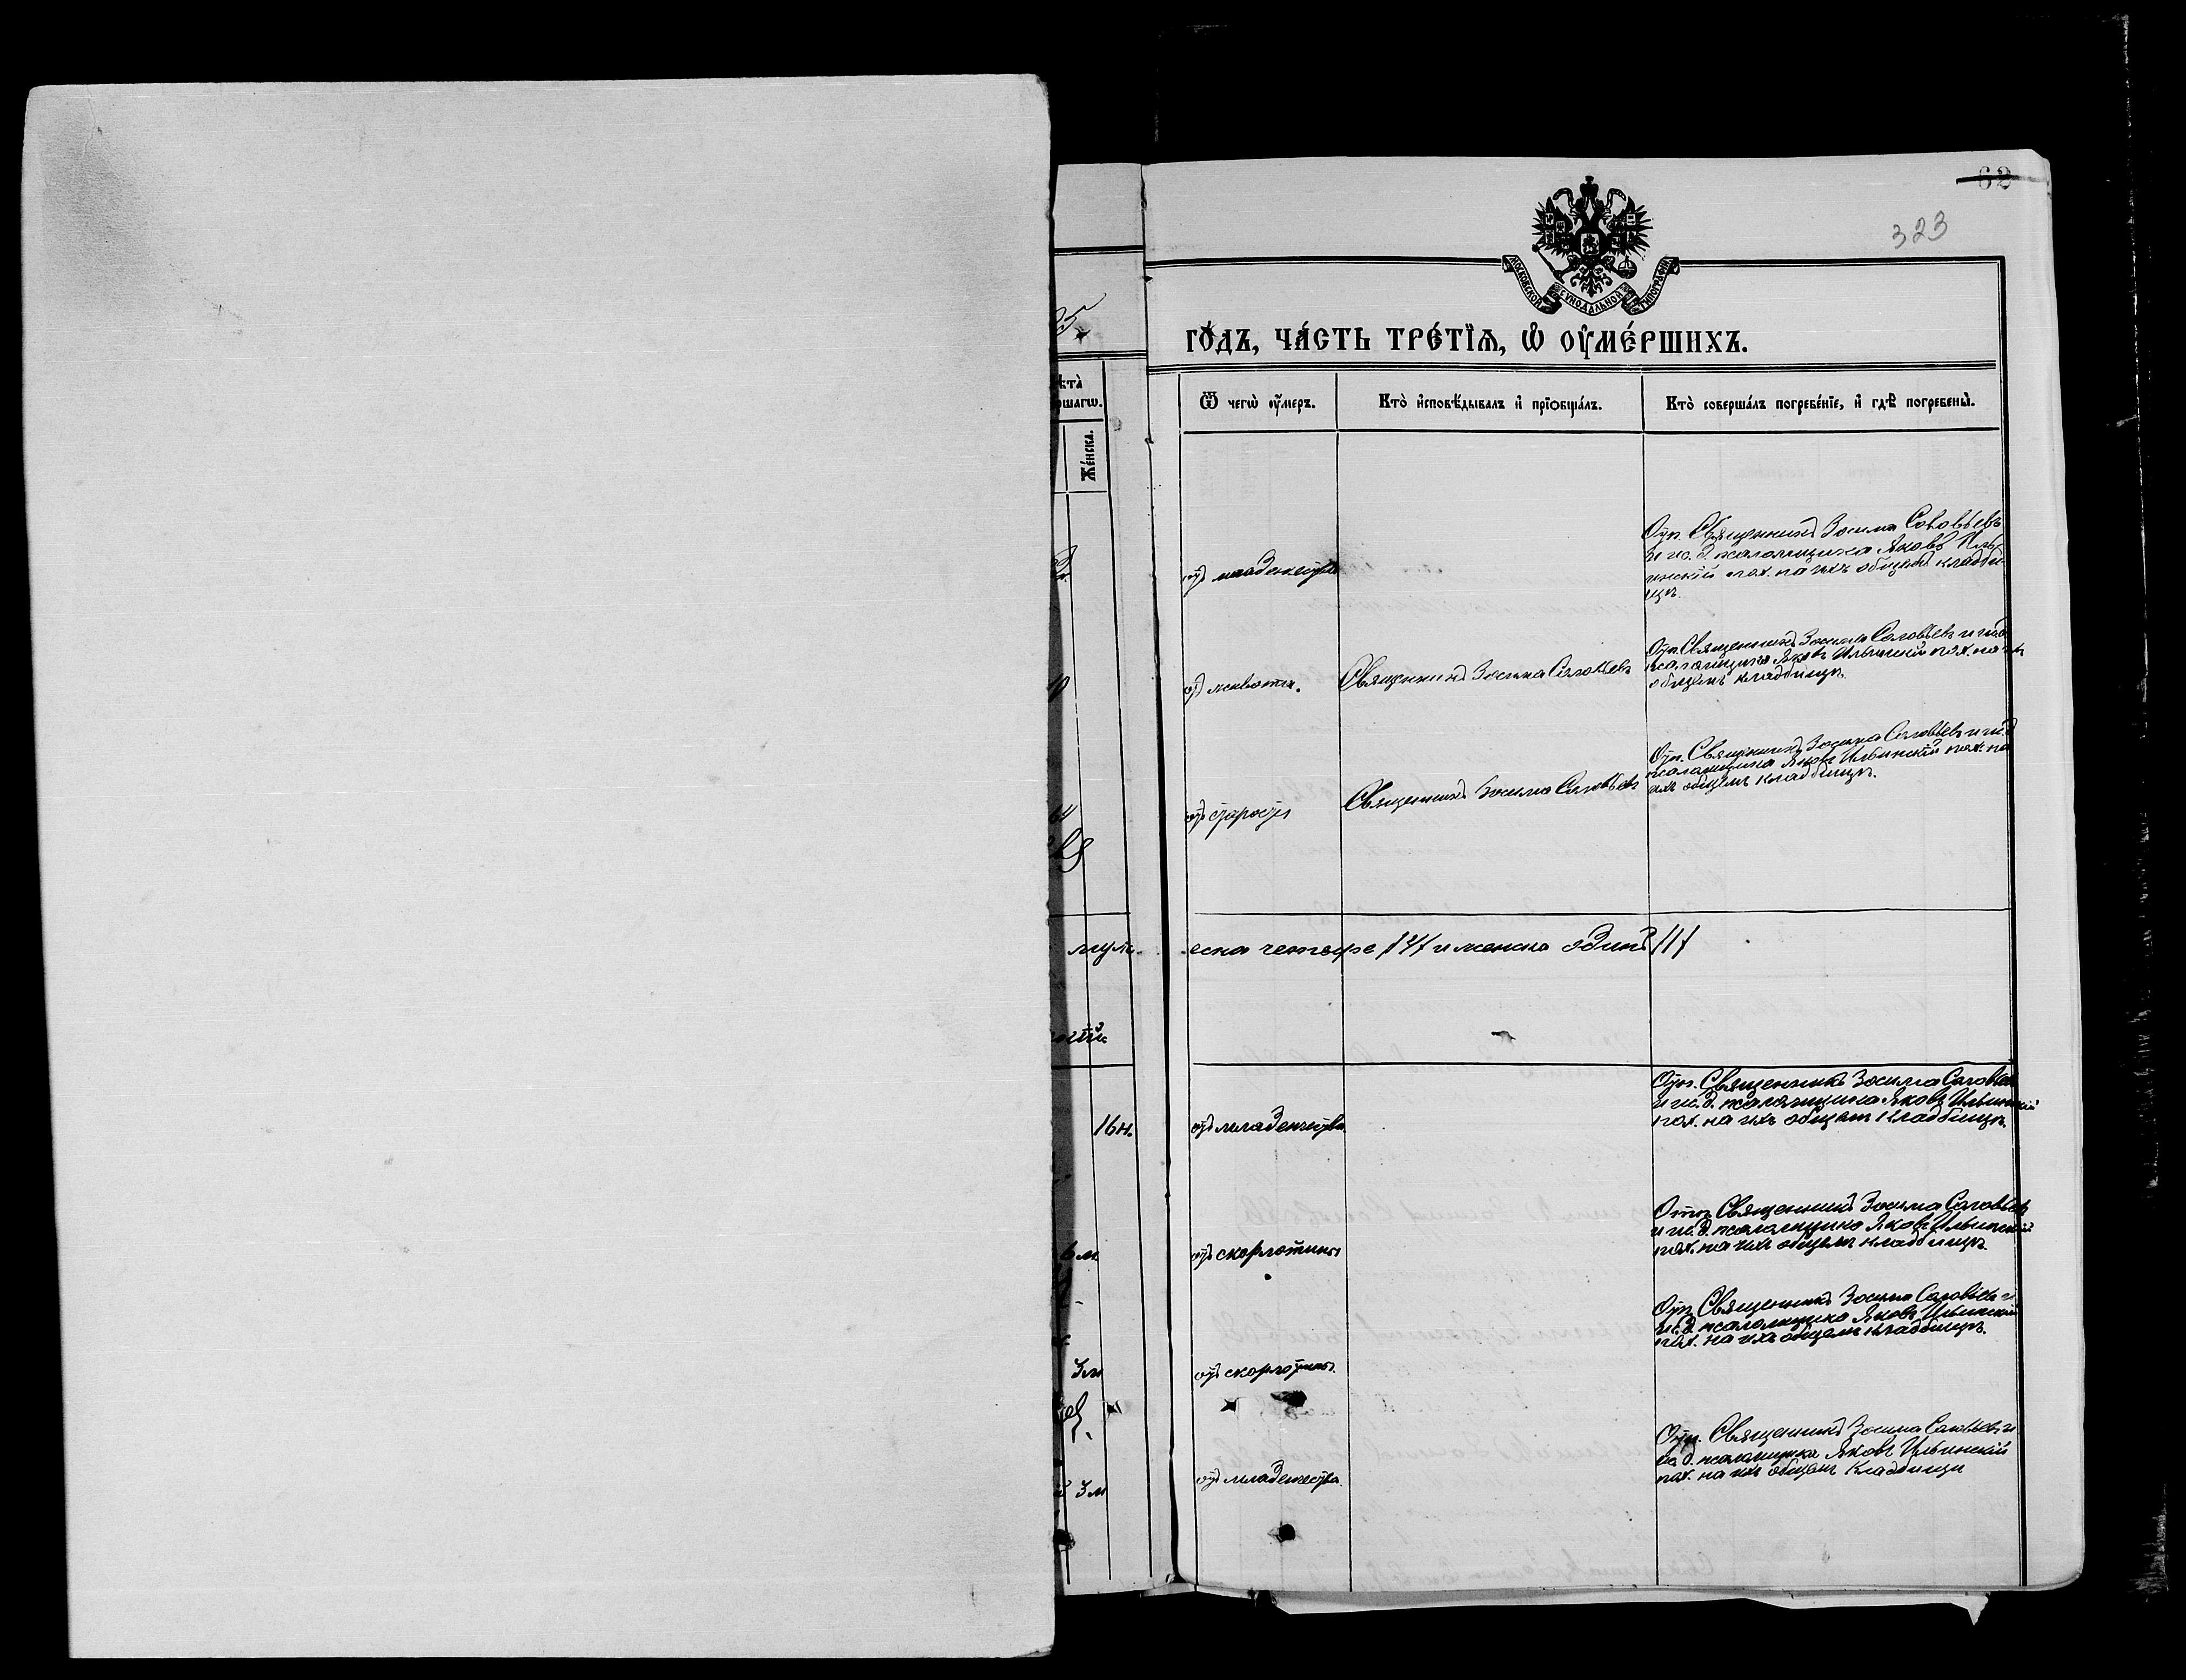 62
323
МОСКОВСКОЙ СУНОДАЛЬНОЙ ТИПОГРАФІИ
ГО́ДЪ, ЧА́СТЬ ТРЕ́ТІѦ, Ѡ҆ ОУ҆МЕ́РШИХЪ.
Ѿ чегѡ̀ оу҆́меръ.
Кто̀ и҆сповѣ́дывалъ и҆ прїѻбща́лъ.
Кто̀ соверша́лъ погребе́нїе, и҆ гдѣ̀ погребены̀.
Же́нска.
отъ младенчества
Отп. Священникъ Зосима Соловьевъ
и ис. д. псаломщика Яковъ Иль-
инскій пох. на ихъ общемъ кладби-
щѣ.
отъ чахотки.
Священникъ Зосима Соловьевъ
Отп. Священникъ Зосима Соловьевъ и ис. д.
псаломщика Яковъ Ильинскій пох. на ихъ
общемъ кладбищѣ.
64
отъ старости
Священникъ Зосима Соловьевъ
Отп. Священникъ Зосима Соловьевъ и ис. д.
псаломщика Яковъ Ильинскій пох. на
ихъ общемъ кладбищѣ.
муж-
еска четыре /4/ и женска одинъ /1/
16 н.
отъ младенчества.
Отп. Священникъ Зосима Соловьевъ
и ис. д. псаломщика Яковъ Ильинскій
пох. на ихъ общемъ кладбищѣ.
6 м
отъ скорлотины
Отп. Священникъ Зосима Соловьевъ
и ис. д. псаломщика Яковъ Ильинскій
пох. на ихъ общемъ кладбищѣ.
3 м
отъ скорлотины.
Отп. Священникъ Зосима Соловьевъ и
ис. д. псаломщика Яковъ Ильинскій
пох. на ихъ общемъ кладбищѣ.
3 м
отъ младенчества.
Отп. Священникъ Зосима Соловьевъ и
ис. д. псаломщика Яковъ Ильинскій
пох. на ихъ общемъ кладбищи